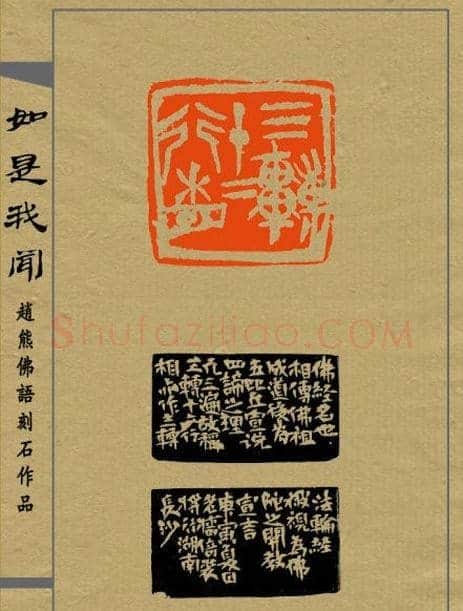 如是我聞
趙熊佛語刻石作品
三轉十二行相
Shufaziliao.COM
佛經名也
相傳佛祖
成道後為
五比丘宣說
四諦之理
凡三遍故稱
三轉十二行
相亦作三轉
法輪經
被視為佛
陀之開教
宣言
庚寅夏日
湖南
長沙